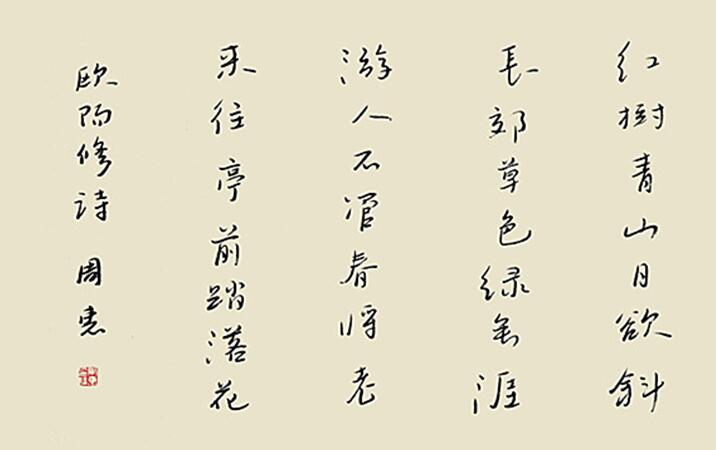 红樹青山日欲斜
長郊草色绿無涯
游人不管春将老
来往亭前踏落花
欧阳修诗 周惠